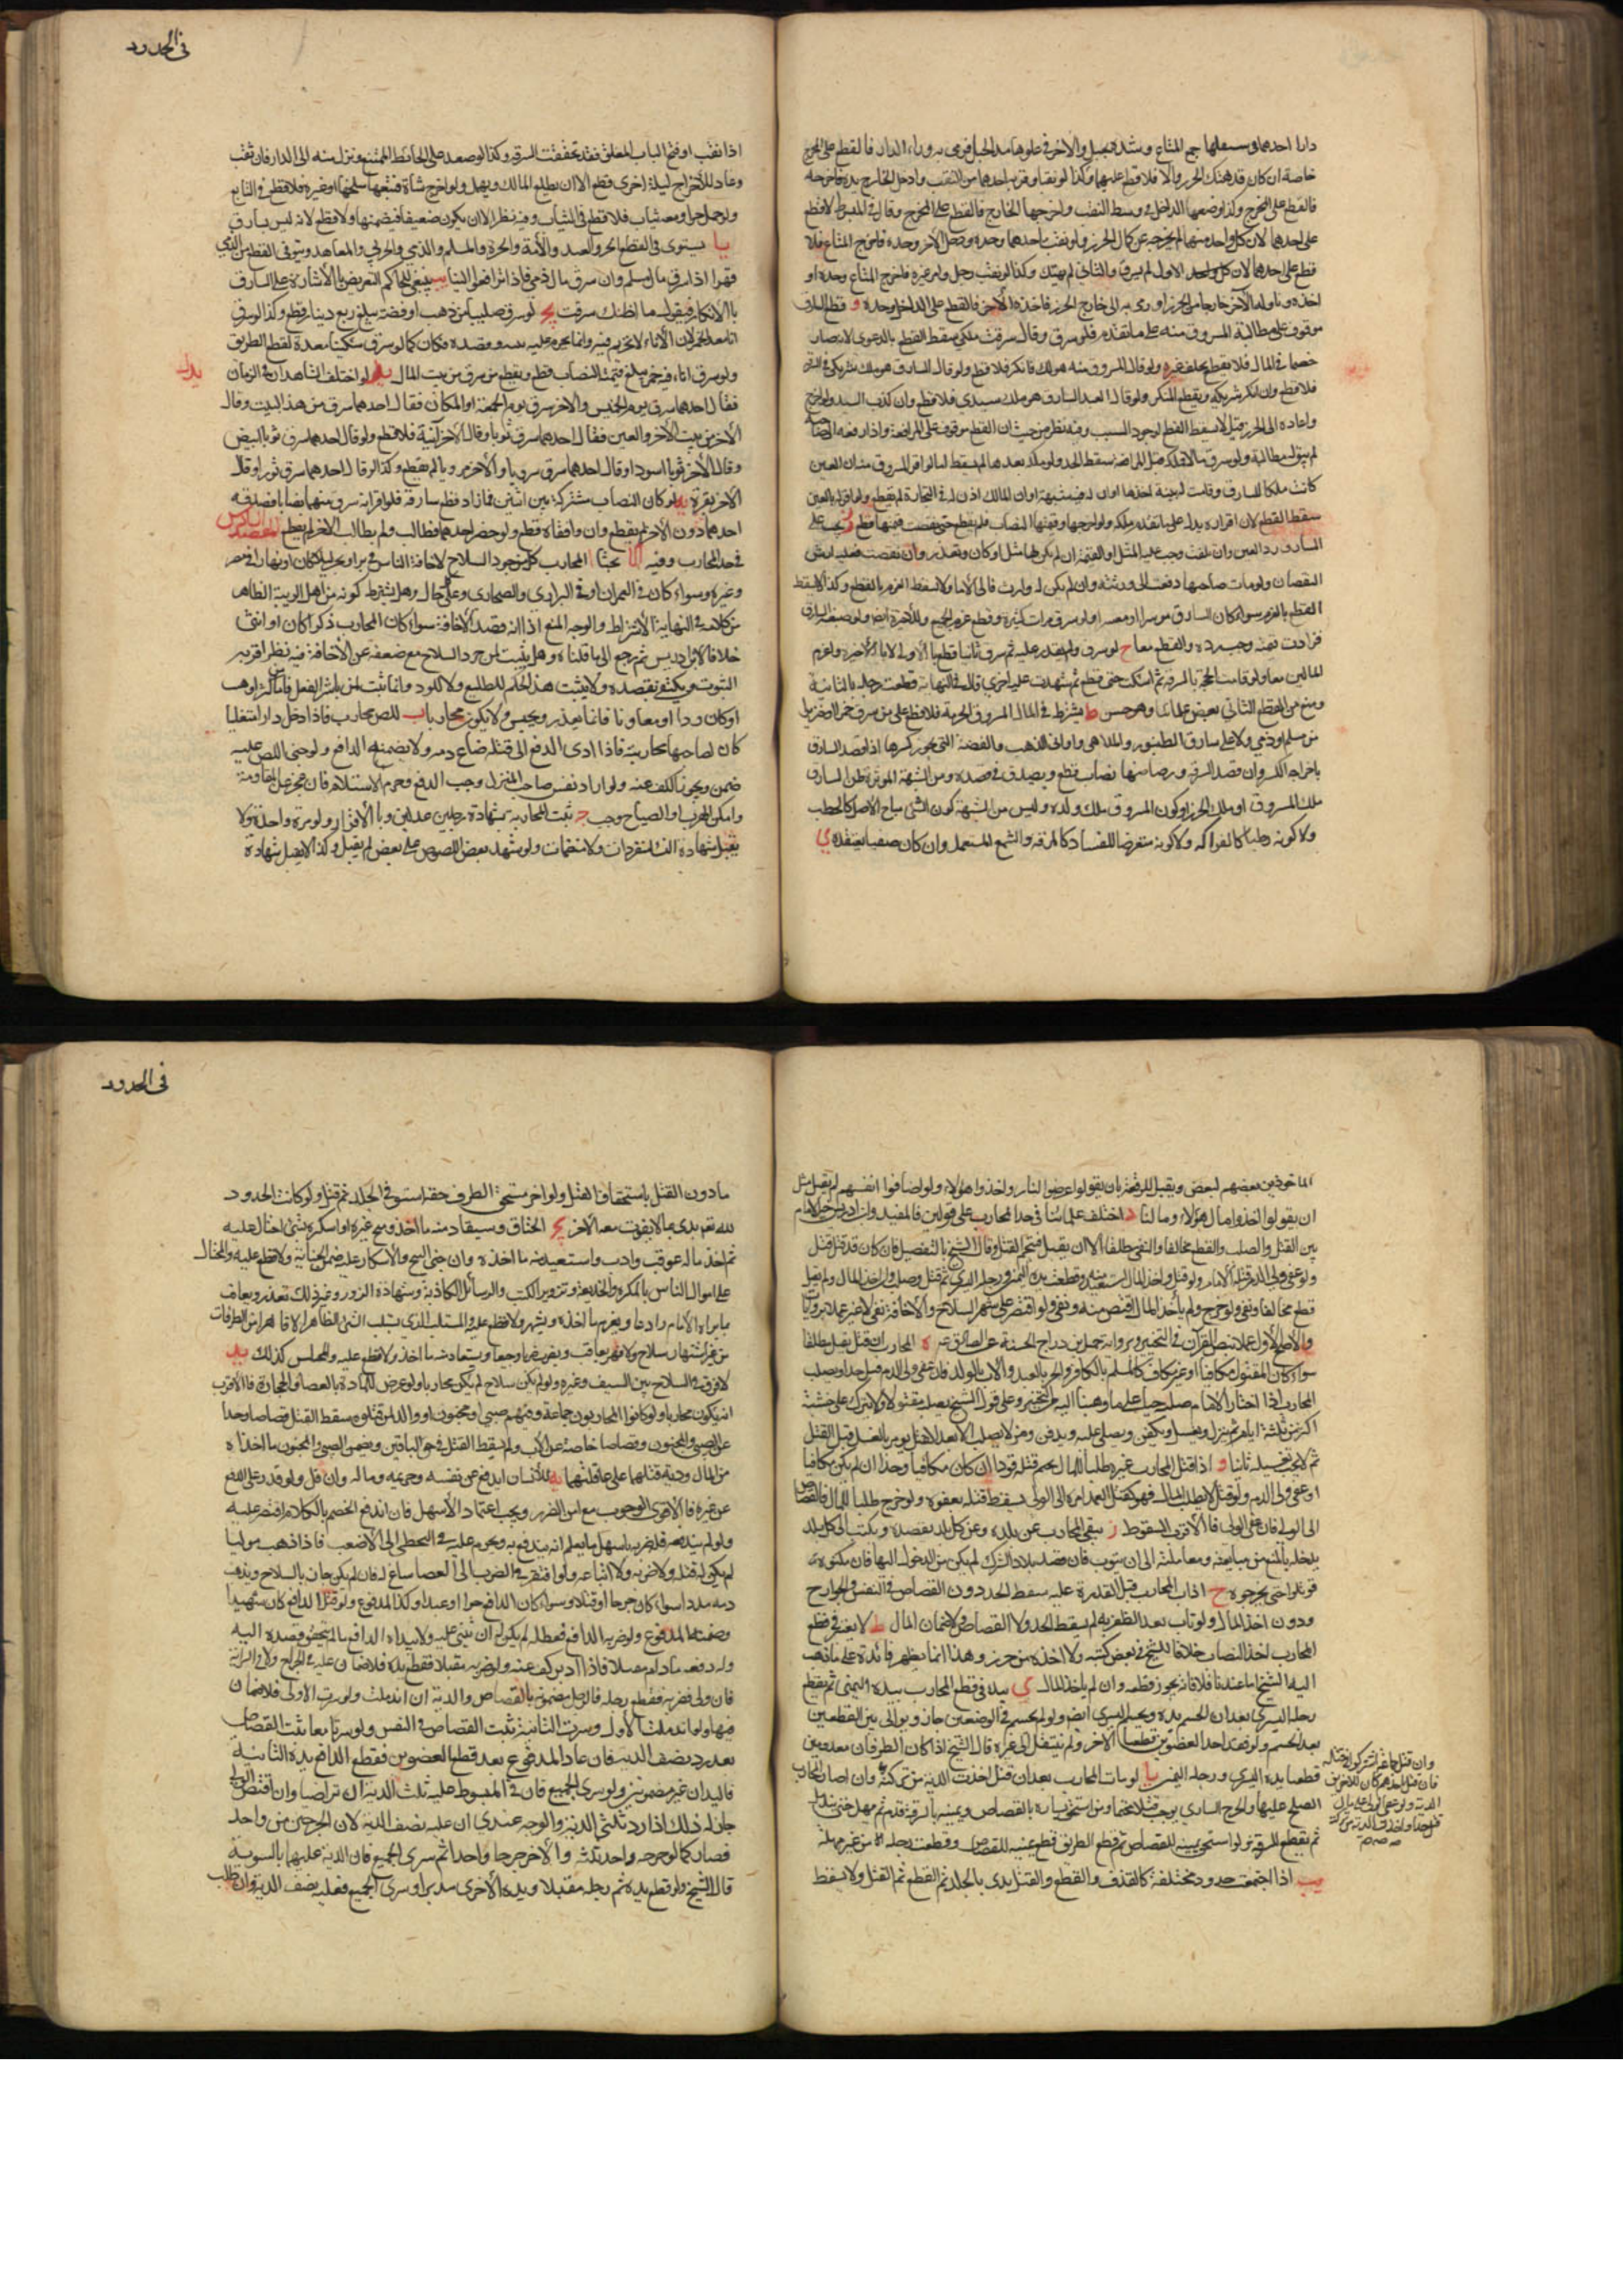 دارا احدهما في سفلها جمع المتاع وشده بحبل والآخر في علوها مد الحبل فرمى به وراء الدار فالقطع على المخرج
خاصة ان كان قد هتك الحرز والا فلا قطع عليهما وكذا لو نقبا وقربه احدهما من النقب وادخل الخارج يده فاخرجه
فالقطع على المخرج ولو وضعها الداخل في وسط النقب واخرجها الخارج فالقطع على المخرج وقال في المبسوط لا قطع
على احدهما لان كل واحد منهما لم يخرجه عن كمال الحرز فلو نقب احدهما وحده ودخل الآخر وحده فاخرج المتاع فلا
قطع على احدهما لان كل واحد الاول لم يسرق والثاني لم يهتك وكذا لو نقب رجل وامر غيره فاخرج المتاع وحده او
اخذه وناوله الآخر خارجا من الحرز او رمى به الى خارج الحرز فاخذه الآخر فالقطع على الداخل وحده و قطع السارق
موقوف على مطالبة المسروق منه على ما تقدم فلو سرق وقال سرقت ملكي سقط القطع بالدعوى لانه صار
خصما في المال فلا يقطع بحلف غيره ولو قال المسروق منه هو لك فانكر فلا قطع ولو قال السارق هو ملك شريكي في السرقة
فلا قطع وان انكر شريكه ويقطع المنكر ولو قال العبد السارق هو ملك سيدي فلا قطع وان كذب السيد ولو اخرج
واعاده الى الحرز قيل لا يسقط القطع لوجود السبب وفيه نظر من حيث ان القطع موقوف على المرافعة واذا رفعه الى صاحبه
لم يبق له مطالبة ولو سرق مالا فملكه قبل المرافعة سقط الحد ولو ملكه بعدها لم يسقط
سقط القطع لان اقراره يدل على تقدم ملكه ولو اخرجها وقيمتها النصاب فلم يقطع حتى نقصت قيمتها قطع ز يجب على
السارق رد العين وان تلفت وجب عليه المثل او القيمة ان لم يكن لها مثل او كان وتعذر وان نقصت فعليه ارش
النقصان ولو مات صاحبها دفعت الى ورثته وان لم يكن له وارث فالى الامام ولا يسقط الغرم بالقطع وكذا لا يسقط
القطع بالغرم سواء كان السارق موسرا او معسرا ولو سرق مرات كثيرة وقطع غرم الجميع
فزادت قيمته وجب رده والقطع معا ح لو سرق ولم يقدر عليه ثم سرق ثانيا قطع بالأولى لا بالأخيرة واغرم
المالين معا ولو قامت الحجة بالسرقة ثم امسكت حتى قطع ثم شهدت عليه باخرى قال في النهاية قطعت رجله بالثانية
ومنع من القطع الثاني بعض علمائنا وهو حسن ط يشترط في المال المسروق الحرمة فلا قطع على من سرق خمرا او خنزيرا
من مسلم او ذمي ولا على سارق الطنبور والملاهي واواني الذهب والفضة التي يجوز كسرها اذا قصد السارق
باخراجه الكسر وان قصد السرقة ورضاضها نصاب قطع ويصدق في قصده ومن الشبهة المؤثرة ظن السارق
ملك المسروق او ملك الحرز او كون المسروق ملك ولده وليس من الشبهة كون الشيء مباح الاصل كالحطب
ولا كونه رطبا كالفواكه ولا كونه متعرضا للفساد كالمرقه والشمع المشتعل وان كان ضيفا ي
في الحدود
اذا نقب او فتح الباب المغلق فقد تحققت السرقة وكذا لو صعد على الحائط الممتنع ونزل منه الى الدار فان نقب
وعاد للاخراج ليلة اخرى قطع الا ان يطلع المالك ويهمل ولو اخرج شاة فتبعها سخلتها او غيره فلا قطع في التابع
ولو حمل حرا ومعه ثياب فلا قطع في الثياب وفيه نظر الا ان يكون ضعيفا فيضمنها ولا قطع لانه ليس بسارق
يا يستوي في القطع الحر والعبد والأمة والحرة والمسلم والذمي والحربي والمعاهد ويستوفى القطع من الذمي
قهرا اذا سرق مال مسلم وان سرق مال ذمي فاذا ترافعوا الينا يب ينبغي للحاكم التعريض بالأشارة على السارق
بالانكار فيقول ما اظنك سرقت يج لو سرق صليبا من ذهب او فضة يبلغ ربع دينار قطع وكذا لو سرق
ولو سرق اناء فيه خمر يبلغ قيمته النصاب قطع ويقطع من سرق من بيت المال يد لو اختلف الشاهدان في الزمان
فقال احدهما سرق يوم الخميس والآخر سرق يوم الجمعة او المكان فقال احدهما سرق من هذا البيت وقال
الآخر من بيت الآخر والعين فقال احدهما سرق ثوبا وقال الآخر آنية فلا قطع ولو قال احدهما سرق ثوبا ابيض
وقال الآخر ثوبا اسود او قال احدهما سرق هرويا والآخر مرويا لم يقطع وكذا لو قال احدهما سرق ثورا وقال
الآخر بقرة يه لو كان النصاب مشتركا بين اثنين فما زاد قطع سارقه فلو اقر انه سرق منهما نصابا فصدقه
احدهما دون الآخر لم يقطع وان وافقاه قطع ولو حضر احدهما فطالب ولم يطالب الآخر لم يقطع المقصد السادس
في حد المحارب وفيه بحثا ا المحارب كل من جرد السلاح لاخافة الناس في بر او بحر ليلا كان او نهارا في مصر
وغيره وسواء كان في العمران او في البراري والصحاري وعلى كل حال وهل يشترط كونه من اهل الريبة الظاهر
من كلامه في النهاية الاشتراط والوجه المنع اذا انه قصد الأخافة سواء كان المحارب ذكرا كان او انثى
خلافا لابن ادريس ثم رجع الى ما قلناه وهل يثبت لمن جرد السلاح مع ضعفه عن الأخافة فيه نظر اقربه
الثبوت ويكتفى بقصده ولا يثبت هذا الحكم للطليع ولا للردء وانما يثبت لمن باشر الفعل فاما
او كان ردا او معاونا فانما يعذر ويحبس ولا يكون محاربا ب اللص محارب فاذا دخل دارا متغلبا
كان لصاحبها محاربته فاذا ادى الدفع الى قتله ضاع دمه ولا يضمنه الدافع ولو جنى اللص عليه
ضمن ويجوز الكف عنه ولو اراد نفس صاحب المنزل وجب الدفع وحرم الاستسلام فان عجز عن المقاومة
وامكن الهرب او الصياح وجب ج تثبت المحاربة بشهادة رجلين عدلين وبالأقرار ولو مرة واحدة ولا
يقبل شهادة النساء منفردات ولا منضمات ولو شهد بعض اللصوص على بعض لم يقبل وكذا لا يقبل شهادة
الماخوذين بعضهم لبعض ويقبل للرفقة بان يقولوا عرضوا لنا واخذوا هؤلاء ولو اضافوا انفسهم لم يقبل مثل
ان يقولوا اخذوا مال هؤلاء ومالنا د اختلف علمائنا في حد المحارب على قولين فالمفيد وابن ادريس خيرا الامام
بين القتل والصلب والقطع مخالفا والنفي مطلقا الا ان يقتل فيتحتم القتل وقال الشيخ بالتفصيل فان كان قد قتل قتل
ولو عفى ولي الدم قتله الامام ولو قتل واخذ المال استعيد منه وقطعت يده اليمنى ورجله اليسرى ثم قتل وصلب وان اخذ المال ولم يقتل
قطع مخالفا ونفي ولو جرح ولم يأخذ المال اقتص منه ونفي ولو اقتصر على شهر السلاح والأخافة نفي لا غير عملا بروايات
والأصل الأول عملا بنص القرآن في التخيير وبرواية جميل بن دراج الحسنة عن الصادق ه المحارب ان قتل يقتل مطلقا
سواء كان المقتول مكافيا او غير مكاف كالمسلم بالكافر والحر بالعبد والاب بالولد فان عفى ولي الدم قتل حدا ويصلب
المحارب اذا اختار الامام صلبه حيا على ما ذهبنا اليه من التخيير وعلى قول الشيخ يصلب مقتولا ولا يترك على خشبته
اكثر من ثلثة ايام ثم ينزل ويغسل ويكفن ويصلى عليه ويدفن ومن لا يصلب الا بعد القتل يؤمر بالغسل قبل القتل
ثم لا يجب تغسيله ثانيا و اذا قتل المحارب غيره طلبا للمال تحتم قتله قودا ان كان مكافيا وحدا ان لم يكن مكافيا
او عفى ولي الدم ولو قتل لا لطلب المال فهو كقتل العمد امره الى الولي يسقط قتله بعفوه ولو جرح طلبا للمال فالقصاص
الى الولي فان عفى الولي فالأقرب السقوط ز ينفى المحارب عن بلده وعن كل بلد يقصده ويكتب الى كل بلد
يدخله بالمنع من مبايعته ومعاملته الى ان يتوب فان قصد بلاد الشرك لم يمكن من الدخول اليها فان مكنوه
قوتلوا حتى يخرجوه ح اذا تاب المحارب قبل القدرة عليه سقط الحد دون القصاص في النفس والجوارح
ودون اخذ المال ولو تاب بعد الظفر به لم يسقط الحد ولا القصاص ولا ضمان المال ط لا يعتبر في قطع
المحارب اخذ النصاب خلافا للشيخ في بعض كتبه ولا اخذه من حرز وهذا انما يظهر فائدة على ما ذهب
اليه الشيخ اما عندنا فلا فانه يجوز قطعه وان لم يأخذ المال ي يبدء في قطع المحارب بيده اليمنى ثم يقطع
رجله اليسرى بعد ان تحسم يده ويحسم اليسرى ايضا ولو لم يحسم في الموضعين جاز ويوالى بين القطعين
بعد الحسم ولو فقد احد العضوين قطعنا الآخر ولم ينتقل الى غيره قال الشيخ اذا كان الطرفان معدومين
قطعنا يده اليسرى ورجله اليمنى يا لو مات المحارب بعد ان قتل اخذت الدية من تركته وان
ثم يقطع للسرقة ولو استحق يمينه للقصاص ثم قطع الطريق قطع يمينه للقصاص وقطعت رجله من غير مهلة
يب اذا اجتمعت حدود مختلفة كالقذف والقطع والقتل بدى بالجلد ثم القطع ثم القتل ولا يسقط
في الحدود
ما دون القتل باستحقاق القتل ولو اخر مستحق الطرف حقه استوفى الجلد ثم قتل ولو كانت الحدود
لله تعالى بدى بما لا يفوت معه الآخر يج الخناق ويستعاد منه ما اخذ ومن بنج غيره او اسكره بشئ احتال عليه
ثم اخذ ماله عوقب وادب واستعيد منه ما اخذه وان جنى البنج والأسكار عليه ضمن الجناية ولا قطع عليه والمحتال
على اموال الناس بالمكر والخديعة وتزوير الكتب والرسائل الكاذبة وشهادة الزور وغير ذلك يعذر ويعاقب
بما يراه الامام رادعا ويغرم ما اخذه ويشهر ولا قطع عليه والمستلب الذي يسلب الشئ الظاهر لا قاهرا من الطرقات
من غير اشهار سلاح ولا قهر يعاقب ويضرب ضربا وجيعا ويستعاد منه ما اخذ ولا قطع عليه والمختلس كذلك يد
لا فرق في السلاح بين السيف وغيره ولو لم يكن سلاح لم يكن محاربا ولو عرض للمارة بالعصا والحجارة فالأقرب
انه يكون محاربا ولو كانوا المحاربون جماعة وفيهم صبي او مجنون او والد لمن قتلوه سقط القتل قصاصا وحدا
عن الصبي والمجنون وقصاصا خاصة عن الأب ولم يسقط القتل في حق الباقين ويضمن الصبي والمجنون ما اخذاه
من المال ودية قتلهما على عاقلتهما يه للأنسان ان يدفع عن نفسه وحريمه وماله وان قل ولو قدر على الدفع
عن غيره فالأقوى الوجوب مع امن الضرر ويجب اعتماد الأسهل فان اندفع الخصم بالكلام اقتصر عليه
ولو لم يندفع فله ضربه باسهل ما يعلم انه يندفع به ويحرم عليه التخطي الى الأصعب فاذا ذهب موليا
لم يكن له قتله ولا ضربه ولا اتباعه ولو افتقر في الضرب الى العصا ساغ له فان لم يكن جاز بالسلاح ويذهب
دمه هدرا سواء كان جرحا او قتلا وسواء كان الدافع حرا او عبدا وكذا المدفوع ولو قتل الدافع كان شهيدا
وضمنه المدفوع ولو ضربه الدافع فعطله لم يكن له ان يثني عليه ولا يبدأه الدافع ما لم يتحقق قصده اليه
وله دفعه ما دام مقبلا فاذا ادبر كف عنه ولو ضربه مقبلا فقطع يده فلا ضمان عليه في الجراح ولا في السراية
فان ولى فضربه فقطع رجله فالرجل مضمونة بالقصاص والدية ان اندملت ولو سرت الاولى فلا ضمان
فيها ولو اندملت الأولى وسرت الثانية ثبت القصاص في النفس ولو سرتا معا ثبت القصاص
بعد رد نصف الدية فان عاد المدفوع بعد قطع العضوين فقطع الدافع يده الثانية
فاليدان غير مضمونتين ولو سرى الجميع قال في المبسوط عليه ثلث الدية ان تراضيا وان اقتص الولي
جاز له ذلك اذا رد ثلثي الدية والوجه عندي ان عليه نصف الدية لان الجرحين من واحد
فصار كما لو جرحه واحد ثلثة والآخر جرحا واحدا ثم سرى الجميع فان الدية عليهما بالسوية
قال الشيخ ولو قطع يده ثم رجله مقبلا ويده الأخرى مدبرا وسرى الجميع فعليه نصف الدية وان طلب